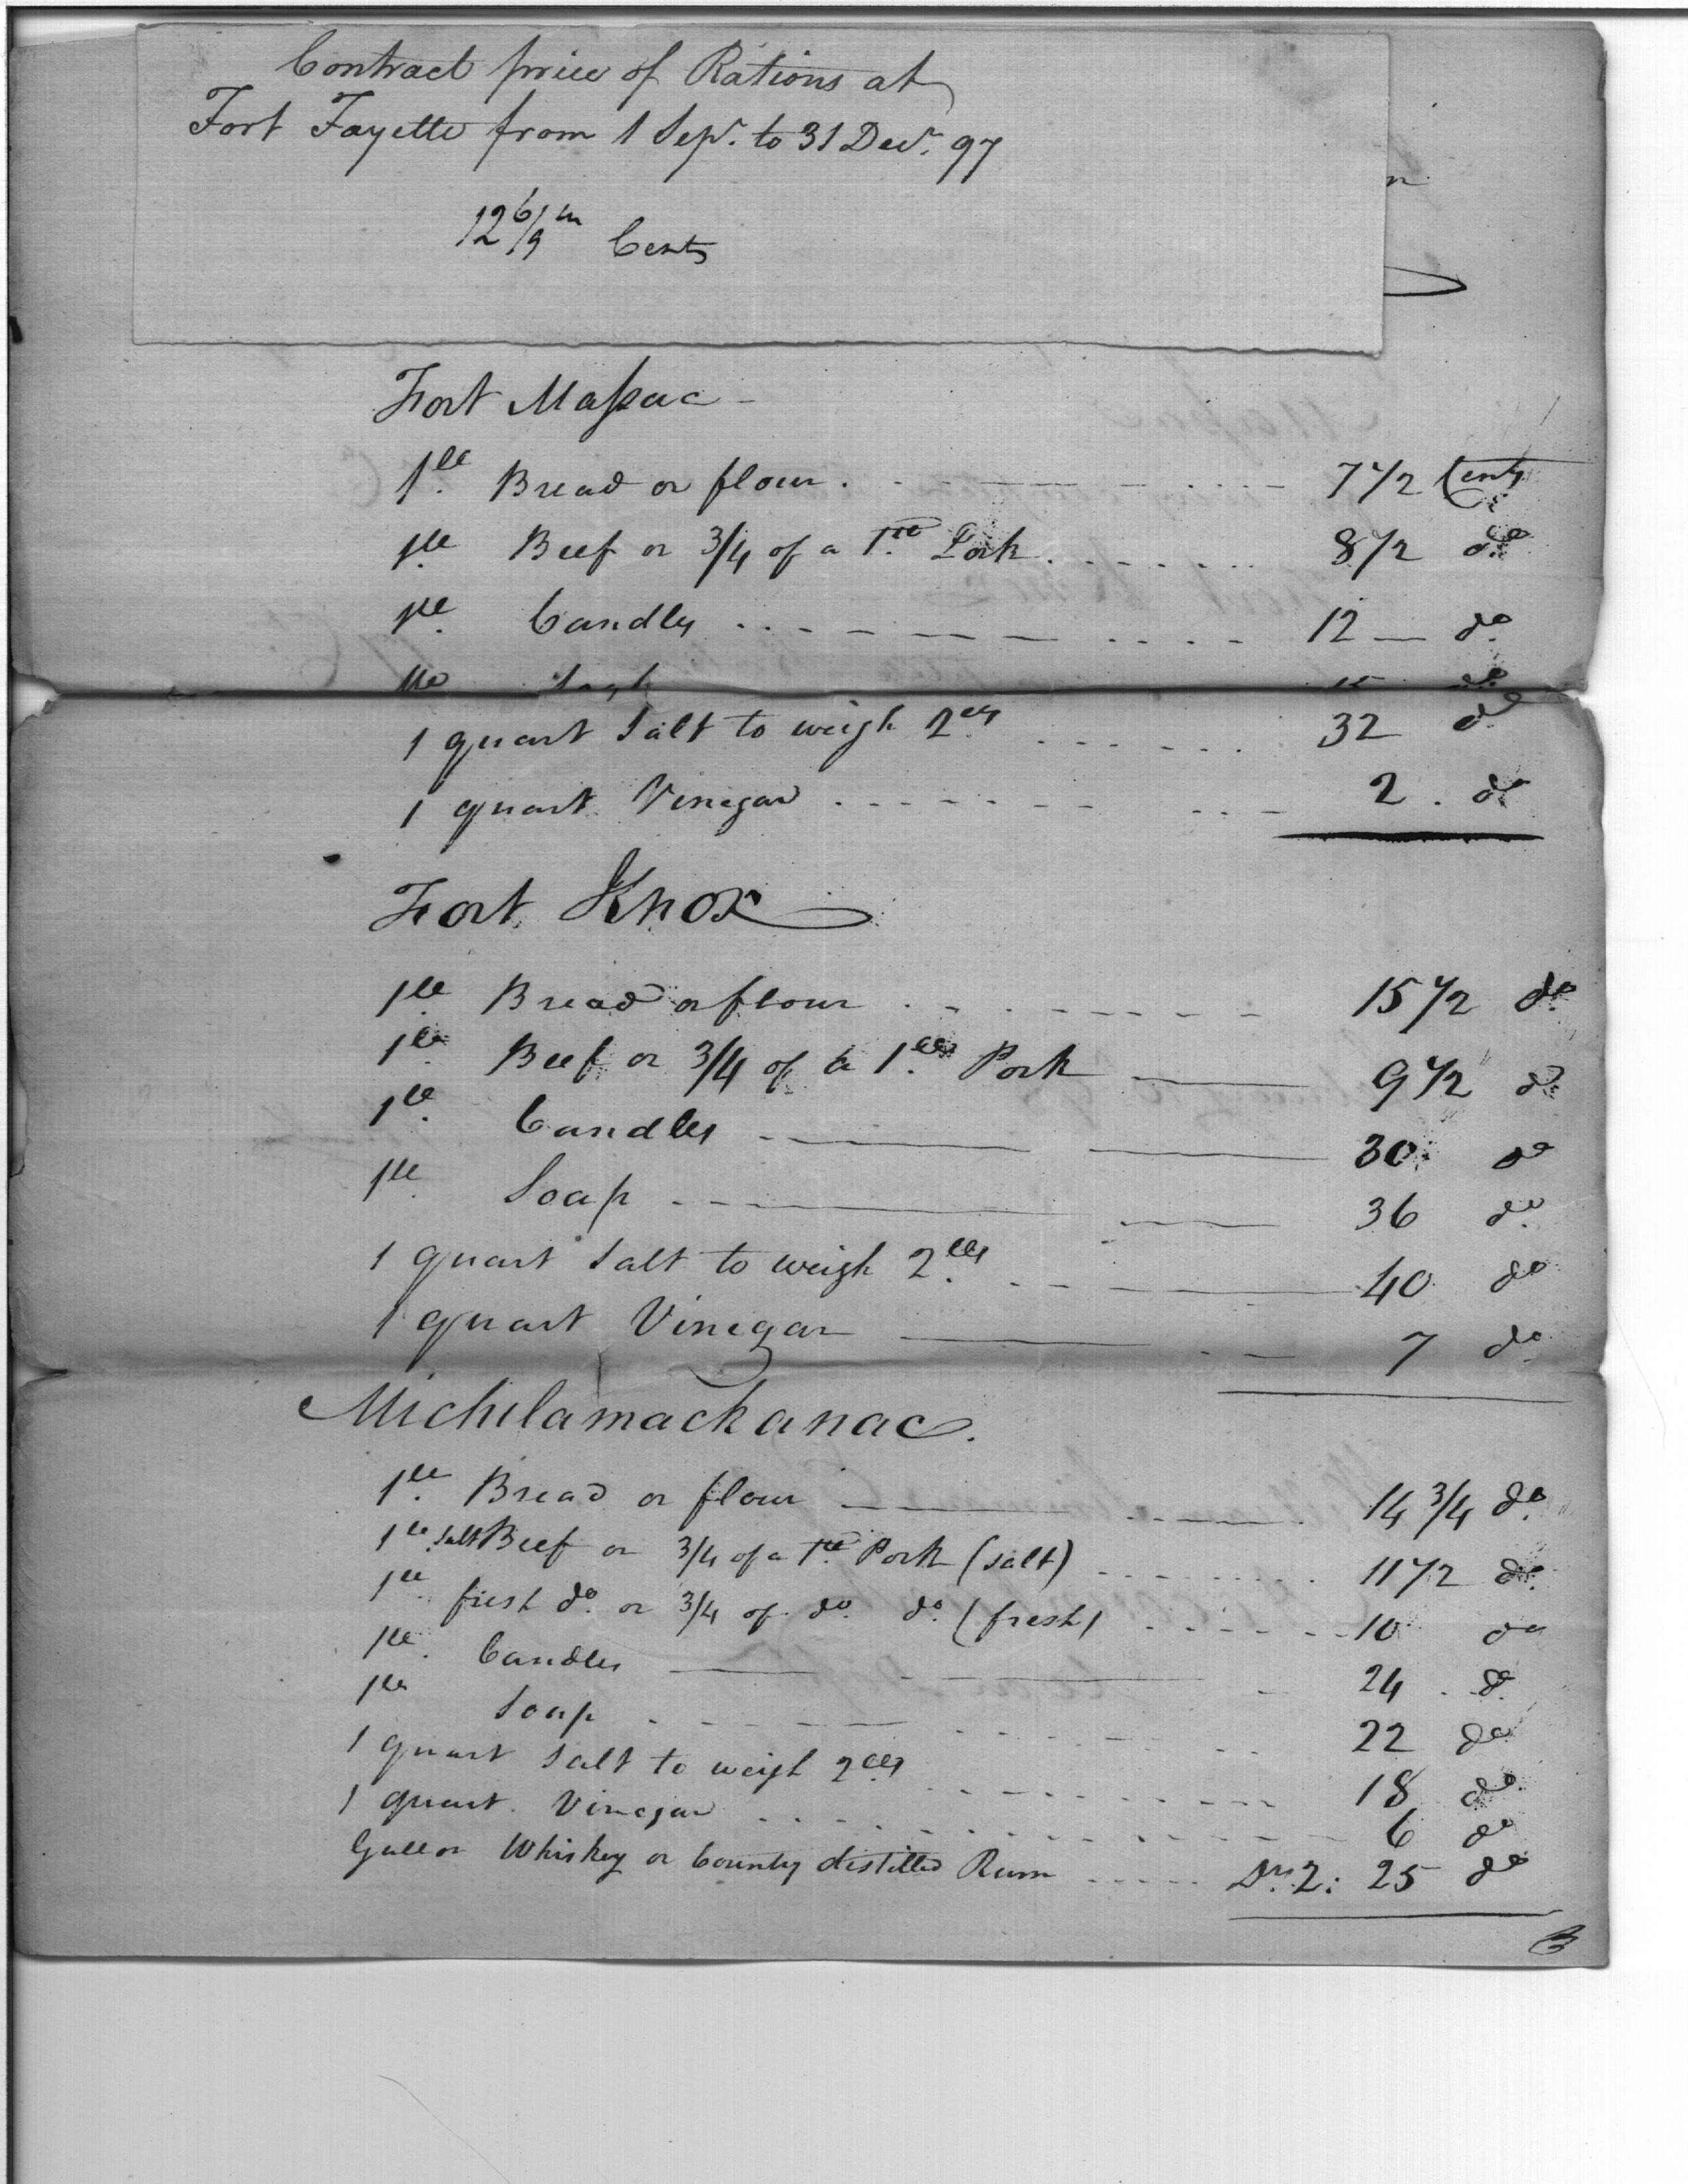 Contract price of Rations at
Fort Fayette from 1 Sepr. to 31 Decr. 97
12 6/9 m Cents
Fort Massac -
1 lb. Bread or flour . 7 1/2 Cents
1 lb. Beef or 3/4 of a 1 lb. Pork . 8 1/2 do.
1 lb. Candles 12 — do.
1 lb Soap 15 do.
1 quart Salt to weigh 2 lbs 32 do.
1 quart Vinegar 2 . do.
Fort Knox
1 lb. Bread or flour 15 1/2 do.
1 lb. Beef or 3/4 of a 1 lb. Pork 9 1/2 do.
1 lb. Candles 30 do
1 lb. Soap 36 do.
1 quart Salt to weigh 2 lbs. 40 do
1 quart Vinegar 7 do.
Michilamackanac.
1 lb. Bread or flour 14 3/4 do.
1 lb. Salt Beef or 3/4 of a 1 lb. Pork (salt) 11 1/2 do.
1 lb. fresh do. or 3/4 of do. do. (fresh) 10 do
1 lb. Candles 24 . do.
1 lb. Soap 22 do.
1 quart Salt to weigh 2 lbs 18 do.
1 quart. Vinegar 6 do
Gallon Whiskey or County distilled Rum Drs. 2: 25 do